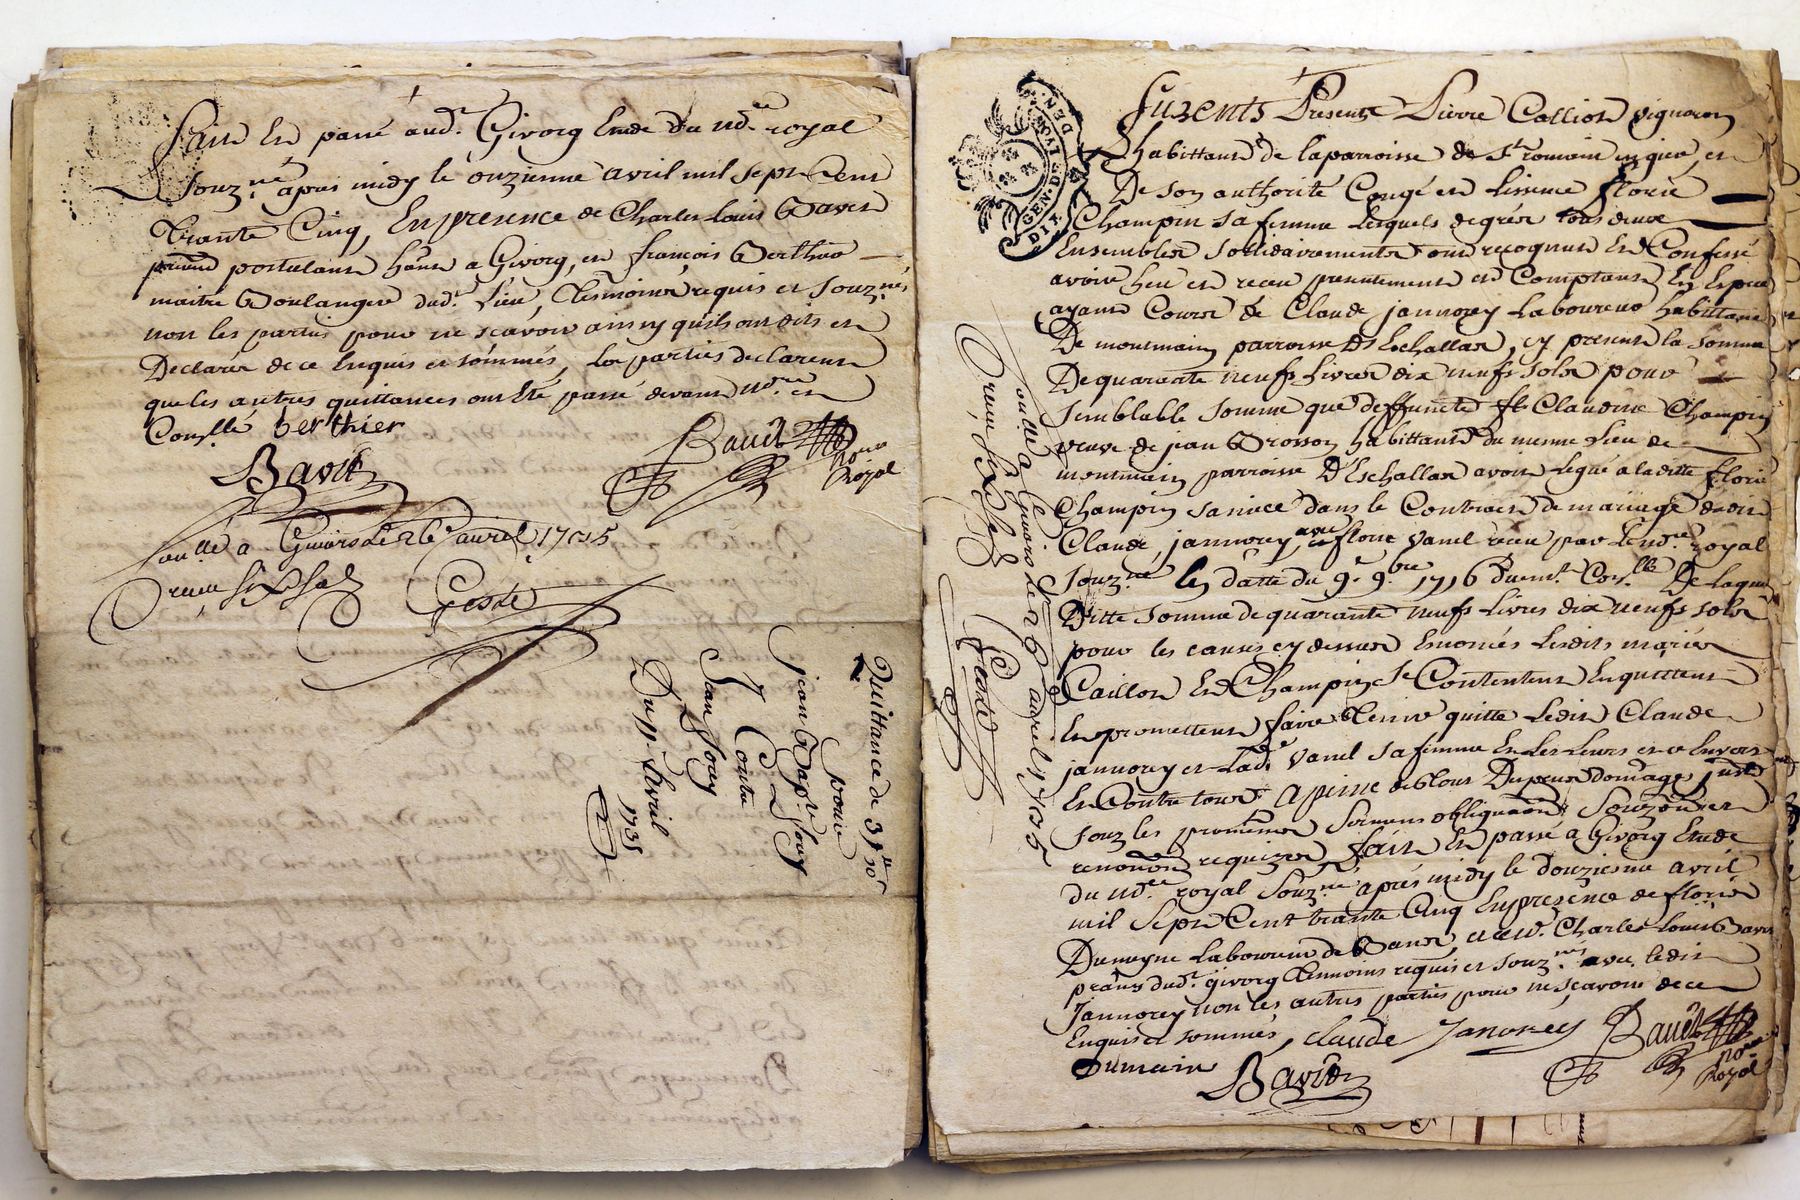 Fait et passé aud.t Givorg Etude du No.re royal
souz.né apres midy le onzieme avril mil sept cent
trante cinq, En presence de Charles Louis Bavet
postulant a Givorg, et françois Berthie
maitre Boulanger dud.t Lieu, Tesmoins requis et souz.nés
non les parties pour ne scavoir ainsy quils ont dits et
Declarés de ce Enquis et sommés, les parties declarent
que les autres quittances ont été passé devant No.re et
Con.llé berthier
Bavet Bauet no.re
Royal
a Givors Le 26e avril 1735
receu six sols Coste
Quittance de 31# 10s
pour
jean Bap.te Jouy
Contre
Jean Jouy
Du 11e Avril
1735
GEN. DE LYON
DIX DEN.
Furents Presents Pierre Caillot vigneron
habittant de la parroisse de St romain en gier, et
De son authorité Congé et Lissence florie
Champin sa femme Lesquels de grés tous deux
Ensembles sollidairements ont recognus Et Confessé
avoir heu et receu presentement et Comptant En Espece
ayant Cours de Claude jannorey Laboureur habittant
De montmain parroisse D'Eschallas, cy present la somme
De quarante neufs Livres dix neufs sols pour
semblable somme que deffuncte Claudine Champin
veuve de jean Brosson habittante du mesme Lieu de
montmain parroisse D'Eschallas avoit Legué a la ditte florie
Champin sa niece dans le Contract de mariage dudit
Claude jannorey, avec florie Vanel receu par Led no.re royal
souz.né En datte du 9e 9.bre 1716 Con.llé De laque
Ditte somme de quarante neufs Livres dix neufs sols
pour les causes cy dessus Enoncés Lesdits mariés
Caillot Et Champin se Contentent En quittent
Et promettent faire Tenir quitte Ledit Claude
jannorey et Lad.e Vanel sa femme Et Les Leurs et ce Envers
Et Contre tous a peine de tous Depens domages
souz les promesses sermens obligations souzmission
renon.ons requizes fait Et passé a Givorg Etude
du No.re royal souz.né après midy le douziesme avril
mil Sept Cent trante Cinq En presence de florie
Dumeyne Laboureur de Bans, et de Charles Louis Bavet
dud.t givorg Tesmoins requis et souz.nés avec ledit
Jannorey non les autres parties pour ne scavoir de ce
Enquis et sommés, claude Janorey Bauet no.re
Dumain Bavet Royal
a Givors Le 26e avril 1735
receu six sols Coste